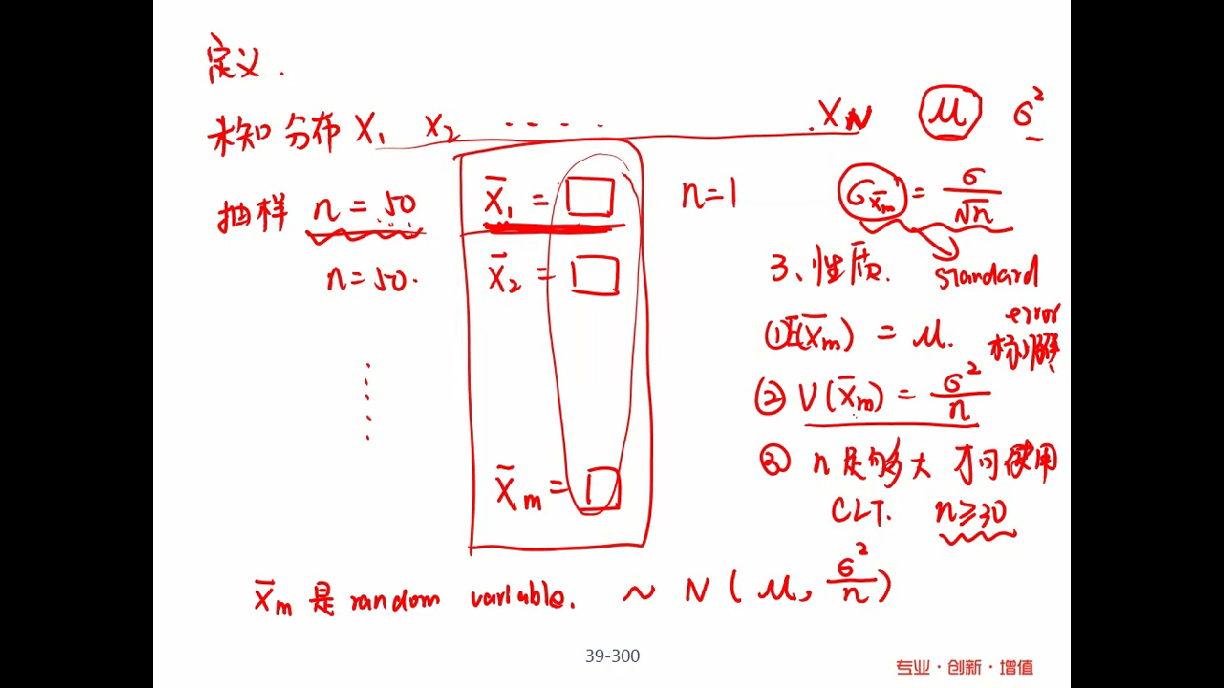 定义.
未知分布 X₁ X₂ ..... X_N μ σ²
抽样 n = 50 X̄₁ = □ n=1 σ_X̄m = σ/√n
n=50. X̄₂ = □ 3、性质. standard
error
①E(X̄m) = μ.
② V(X̄m) = σ²/n
③ n足够大 才可使用
X̄m = □ CLT. n≥30
X̄m 是 random variable. ~ N(μ, σ²/n)
39-300
专业·创新·增值